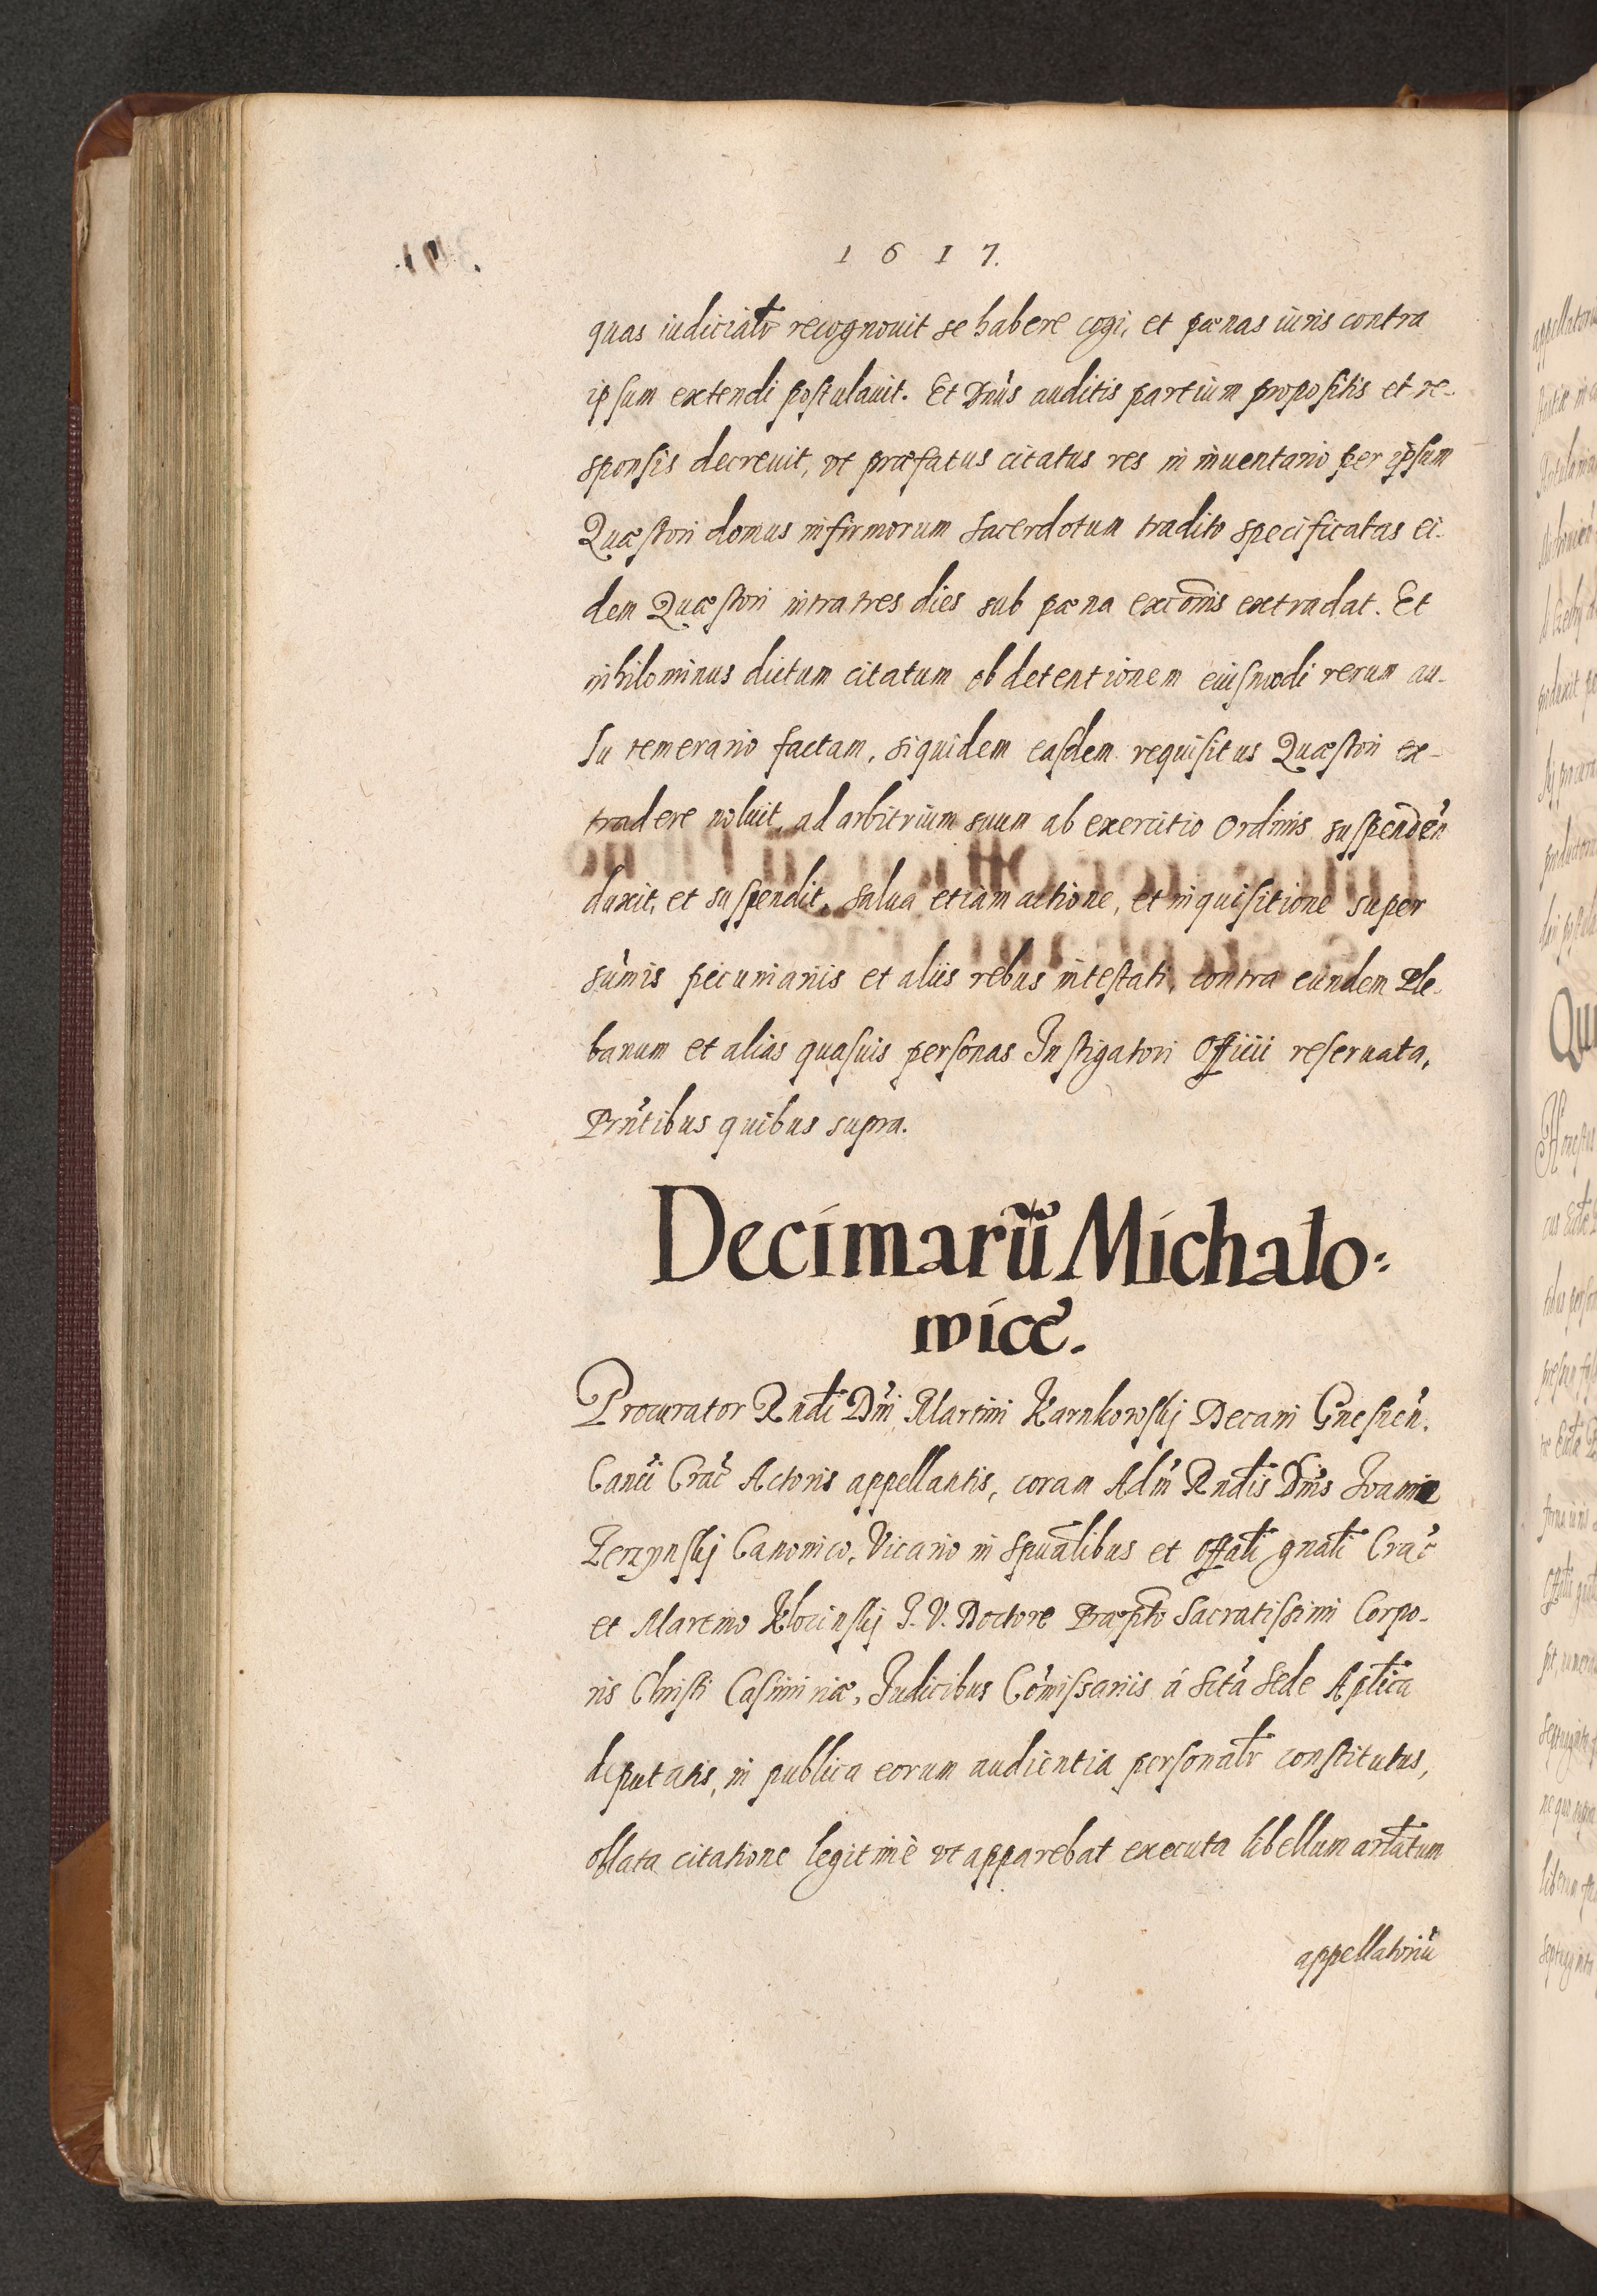 1617.
quas iudicialr recognouit se habere cogi, et pœnas iuris contra
ipsum extendi postulauit. Et Dnus auditis partium propositis et re-
sponsis decreuit, vt præfatus citatus res in inuentario per ipsum
Quæstori domus infirmorum sacerdotum tradito specificatas ei-
dem Quæstori intra tres dies sub pœna excōnis extradat. Et
nihilominus dictum citatum ob detentionem eiusmodi rerum au-
su temerario factam, siquidem easdem requisitus Quæstori ex-
tradere noluit, ad arbitrium suum ab exercitio Ordinis suspenden
duxit, et suspendit, salua etiam actione, et inquisitione super
sumis pecuniariis et aliis rebus intestati, contra eundem Ple-
banum et alias quasuis personas Instigatori Officii reseruata,
Prntibus quibus supra.
Decimarū Michalo:
wice.
Procurator Rndi Dni Martini Karnkowskj Decani Gnesnen.
Canci Crac Actoris appellantis, coram Adm Rndis Dnis Joanne
Zerzynskj Canonico, Vicario in spualibus et Offali gnali Crac
et Martino Klocinskj J. V. Doctore Præpto Sacratissimi Corpo-
ris Christi Casimiriæ, Judicibus Comissariis á Scta Sede Aplica
deputatis, in publica eorum audientia personalr constitutus,
oblata citatione legitimè vt apparebat executa libellum arlatum
appellatoriū